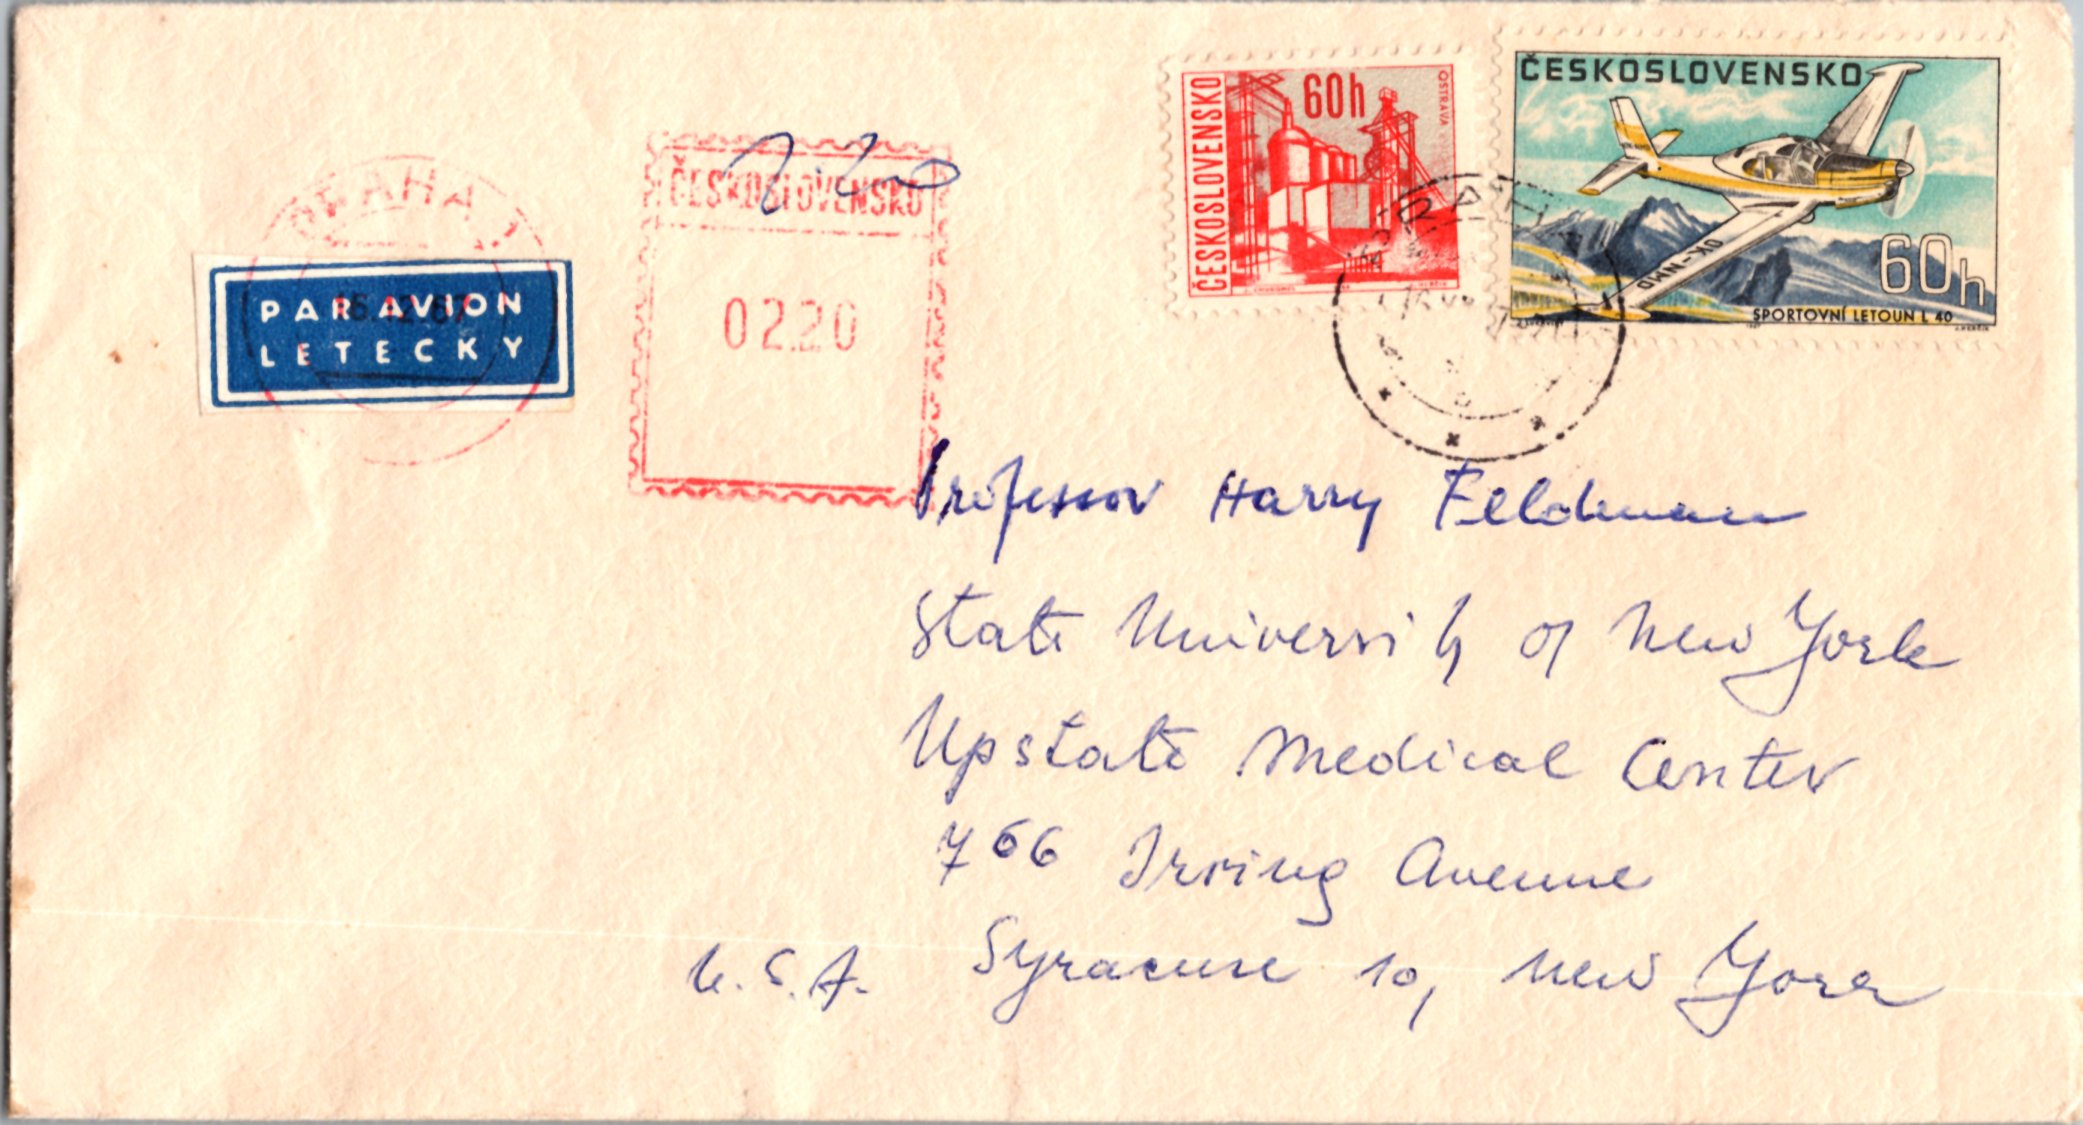 PRAHA 1
PAR AVION
LETECKY
15.12.67
ČESKOSLOVENSKO
02.20
ČESKOSLOVENSKO
60h
OSTRAVA
ČESKOSLOVENSKO
OK-NMD
60h
SPORTOVNÍ LETOUN L 40
J. HERČÍK
Professor Harry Feldman
State University of New York
Upstate Medical Center
766 Irving Avenue
U.S.A. Syracuse 10, New York